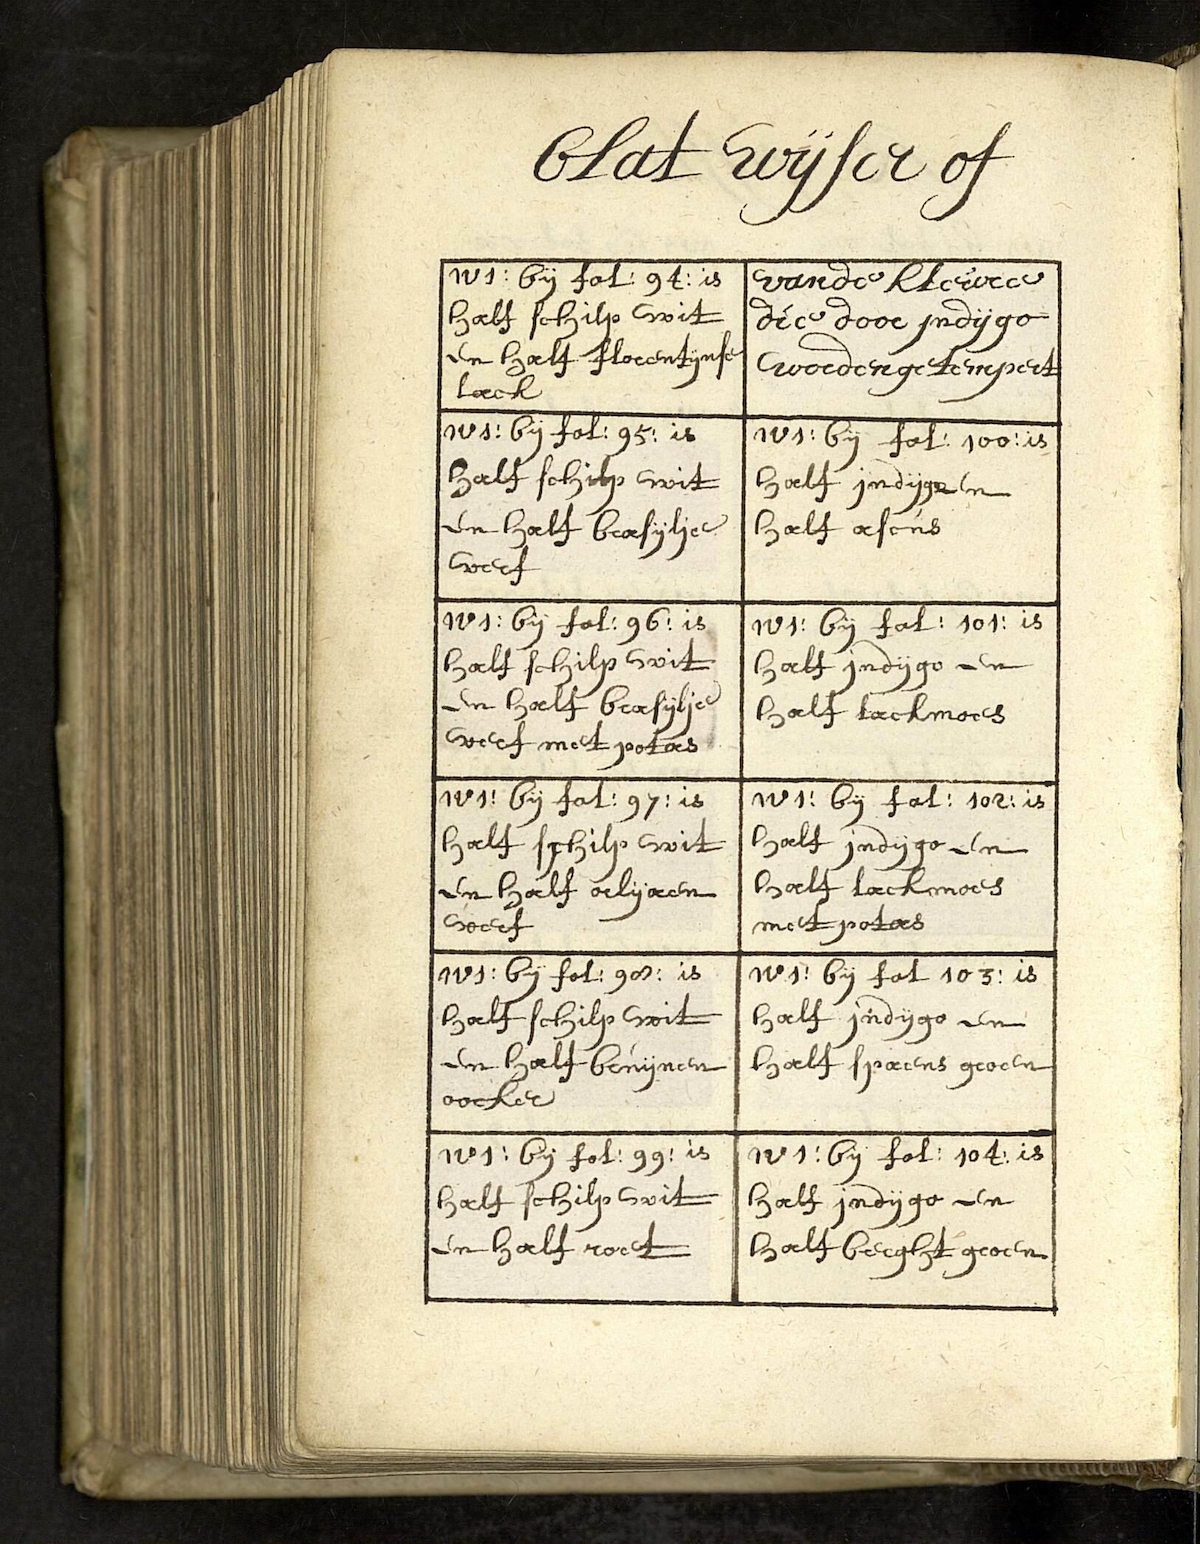 blat wijser of
N1: bij fol: 94: is
half schilp wit
en half florentijnse
lack
N1: bij fol: 95: is
half schilp wit
en half brasylje
verf
N1: bij fol: 96: is
half schilp wit
en half brasylje
verf met potas
N1: bij fol: 97: is
half schilp wit
en half orlijaen
verf
N1: bij fol: 98: is
half schilp wit
en half bruijnen
oocker
N1: bij fol: 99: is
half schilp wit
en half roet
vande kleure
die door indijgo
worden getempert
N1: bij fol: 100: is
half indijgo en
half aseus
N1: bij fol: 101: is
half indijgo en
half lackmoes
N1: bij fol: 102: is
half indijgo en
half lackmoes
met potas
N1: bij fol 103: is
half indijgo en
half spaens groen
N1: bij fol: 104: is
half indijgo en
half berght groen